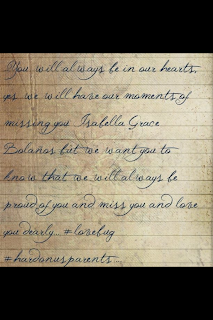 You will always be in our hearts,
yes we will have our moments of
missing you Isabella Grace
Bolaños but we want you to
know that we will always be
proud of you and miss you and love
you dearly... #lovebug
#hardonusparents...